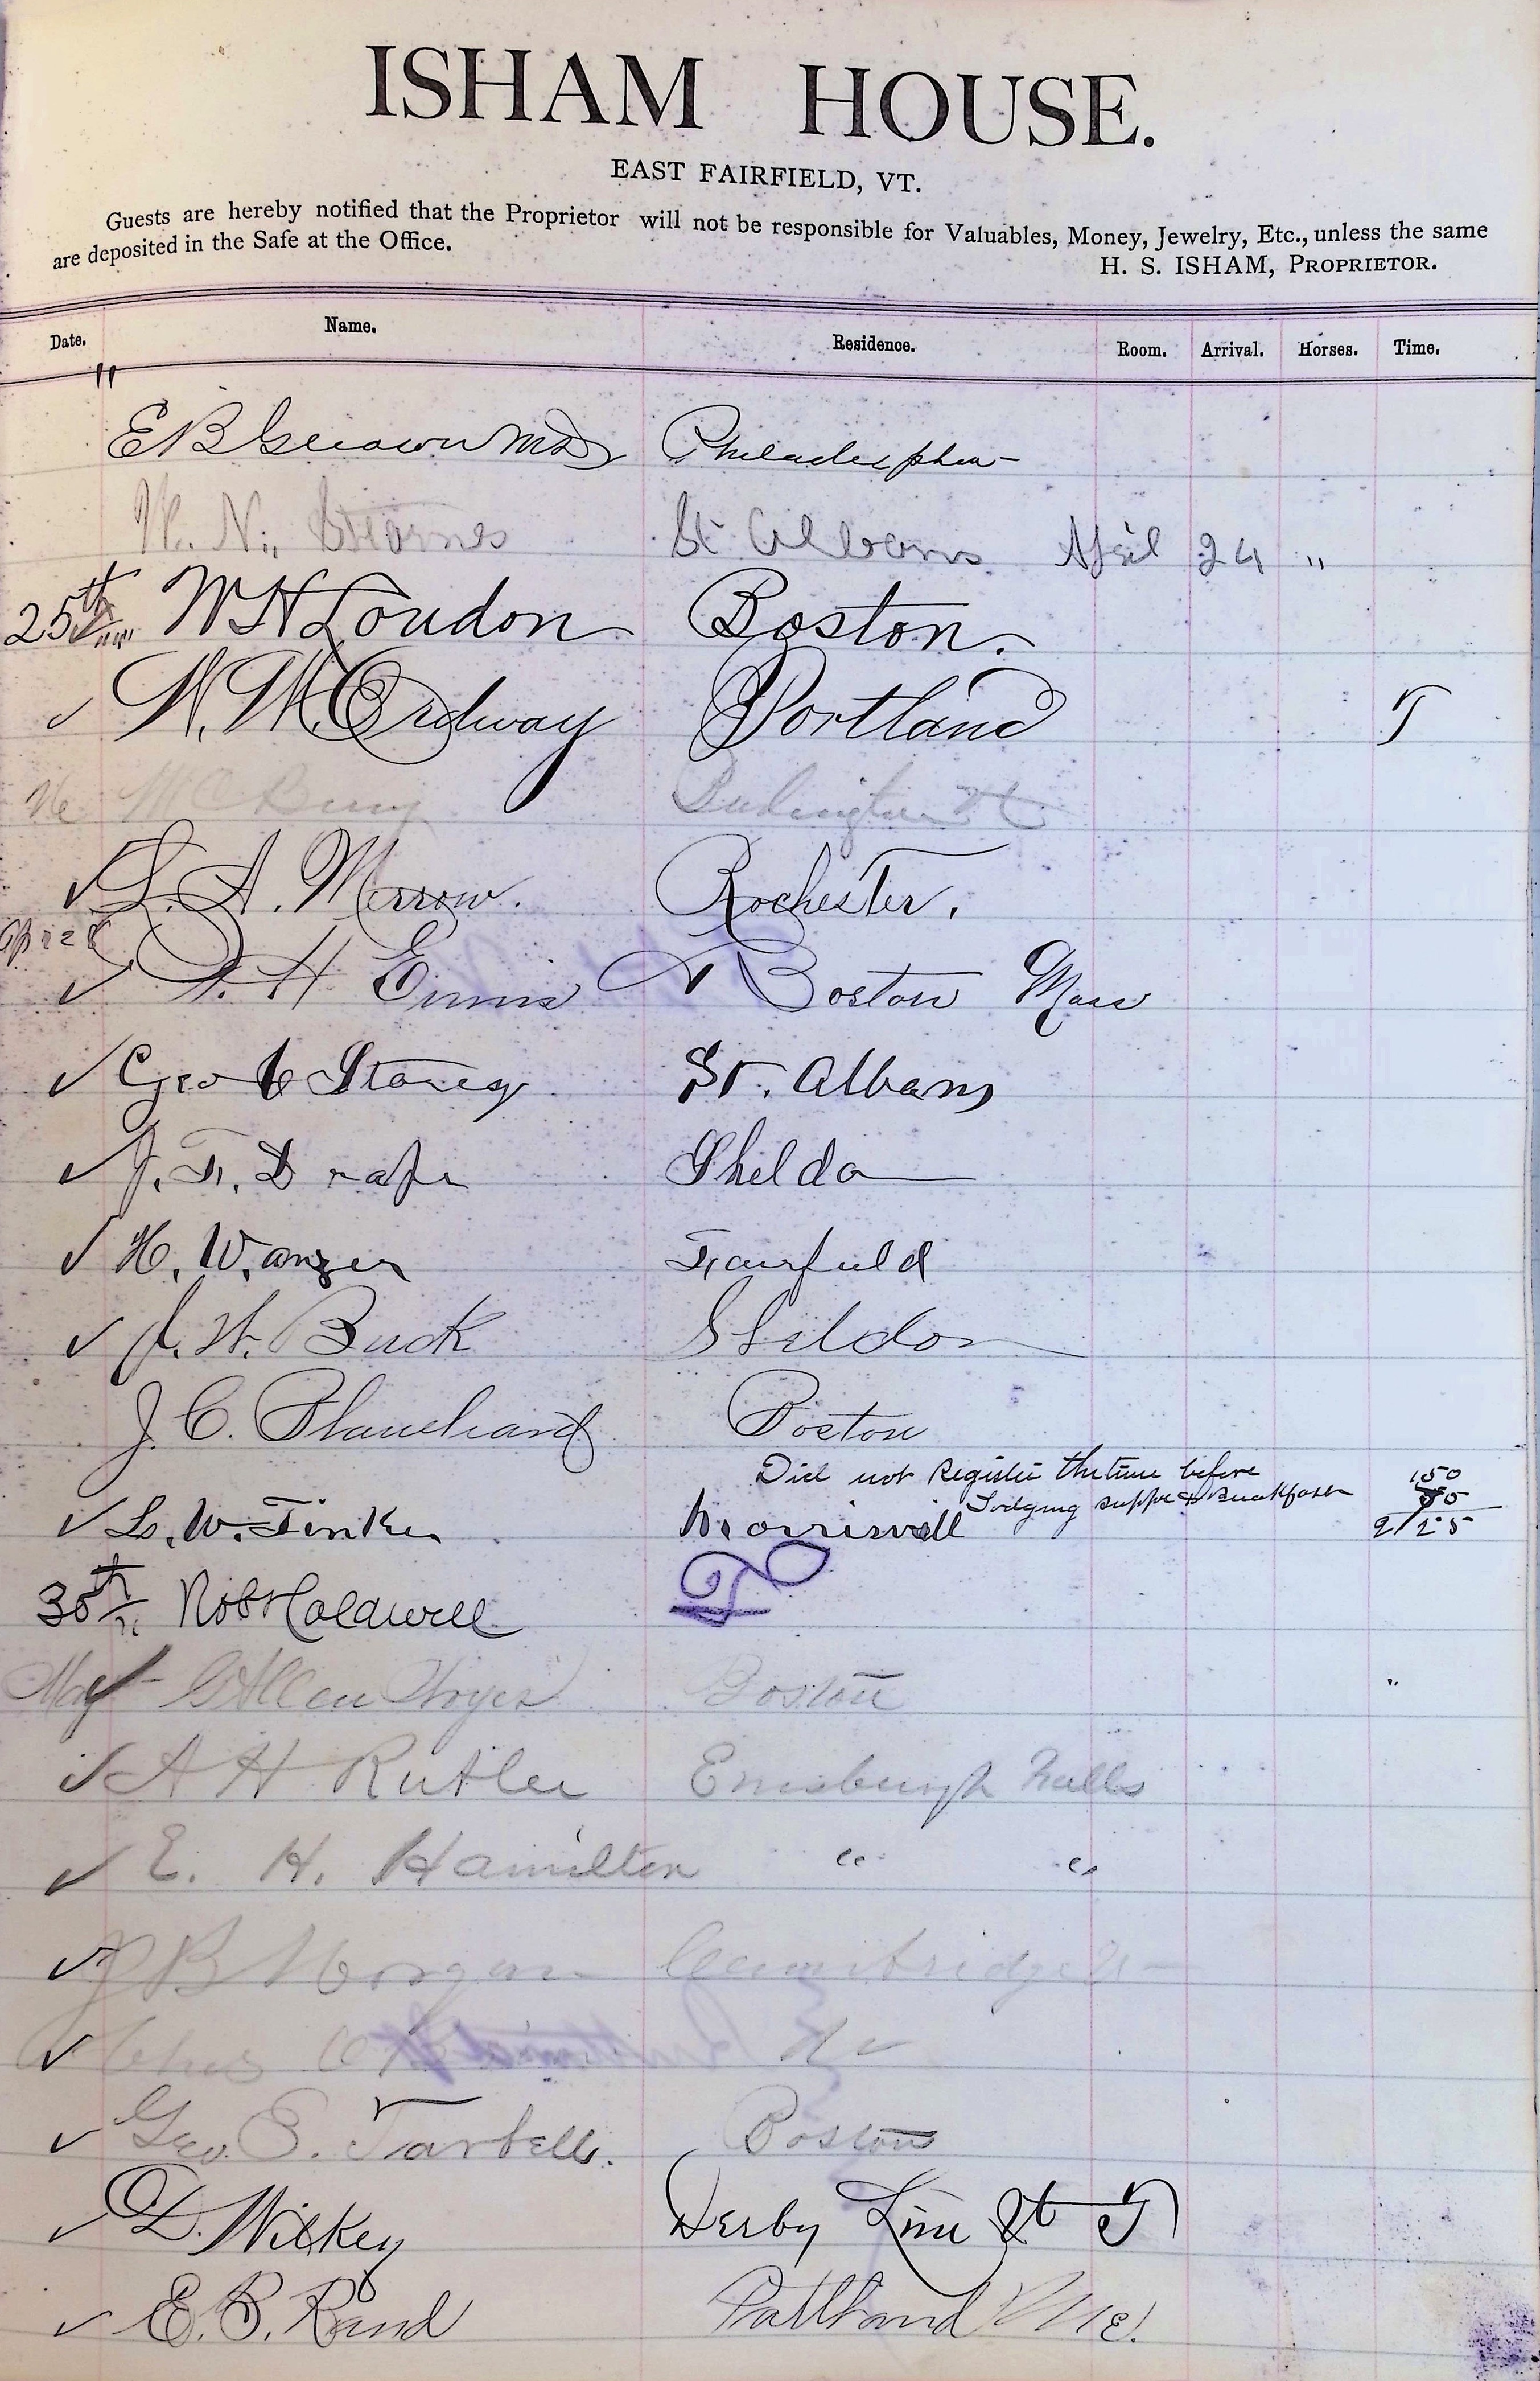 ISHAM HOUSE.
EAST FAIRFIELD, VT.
Guests are hereby notified that the Proprietor will not be responsible for Valuables, Money, Jewelry, Etc., unless the same
are deposited in the Safe at the Office.
H. S. ISHAM, PROPRIETOR.
Date. Name. Residence. Room. Arrival. Horses. Time.
"
E B MD Philadelphia
N. Stearnes St Albans April 24 "
25th W H Loudon Boston.
Ordway Portland T
Burlington Vt
L. A. Merrow. Rochester.
H Boston Mass
✓ Geo Storey St. Albans
✓ J. F. Draper Sheldon
✓ H. Wanzer Fairfield
✓ J. H. Buck Sheldon
J. C. Blanchard Boston
Did not Register the time before 150
Lodging supper & Breakfast
✓ L. W. Tinker Morrisvill 2/25
30th Robt Caldwell T
May Allen Boston "
✓ A H Enosburgh Falls
✓ E. H. Hamilton " "
✓ B Morgan Cambridge
✓
✓ Geo. E. Tarbell. Boston
✓ D. Wilkey Derby Line Vt T
✓ E. B. Rand Portland Me.